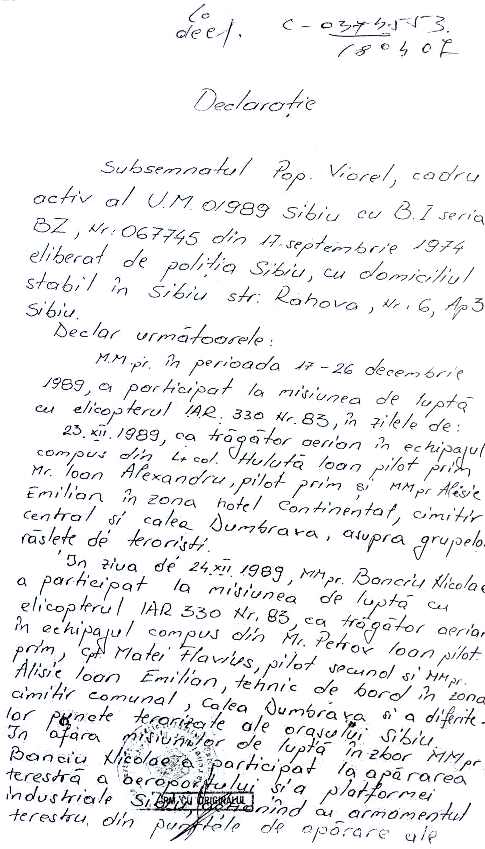 decl. C-0374553.
180407
Declarație
Subsemnatul Pop. Viorel, cadru
activ al U.M. 01989 Sibiu cu B.I seria
BZ, Nr: 067745 din 17. septembrie 1974
eliberat de poliția Sibiu, cu domiciliul
stabil în Sibiu str: Rahova, Nr. 6, Ap3
Sibiu.
Declar următoarele:
M.M.pr. în perioada 17-26 decembrie
1989, a participat la misiunea de luptă
cu elicopterul IAR. 330 Nr. 83, în zilele de:
23.XII.1989, ca trăgător aerian în echipajul
compus din Lt col. Huluță Ioan pilot prim
Mr. Ioan Alexandru, pilot prim și MMpr Alisie
Emilian în zona hotel Continental, cimitir
central si calea Dumbrava, asupra grupelor
răslețe de teroriști.
În ziua de 24.XII.1989, MMpr. Banciu Nicolae
a participat la misiunea de luptă cu
elicopterul IAR 330 Nr. 83, ca trăgător aerian
în echipajul compus din Mr. Petrov Ioan pilot
prim, cpt Matei Flavius, pilot secund si MMpr.
Alisie Ioan Emilian, tehnic de bord în zona
cimitir comunal, calea Dumbrava si a diferite-
lor puncte terorizate ale orașului Sibiu.
În afara misiunilor de luptă în zbor MMpr
Banciu Nicolae a participat la apărarea
terestră a aeroportului si a platformei
industriale Sibiu, acționînd cu armamentul
CONFORM CU ORIGINALUL
terestru din punctele de apărare ale